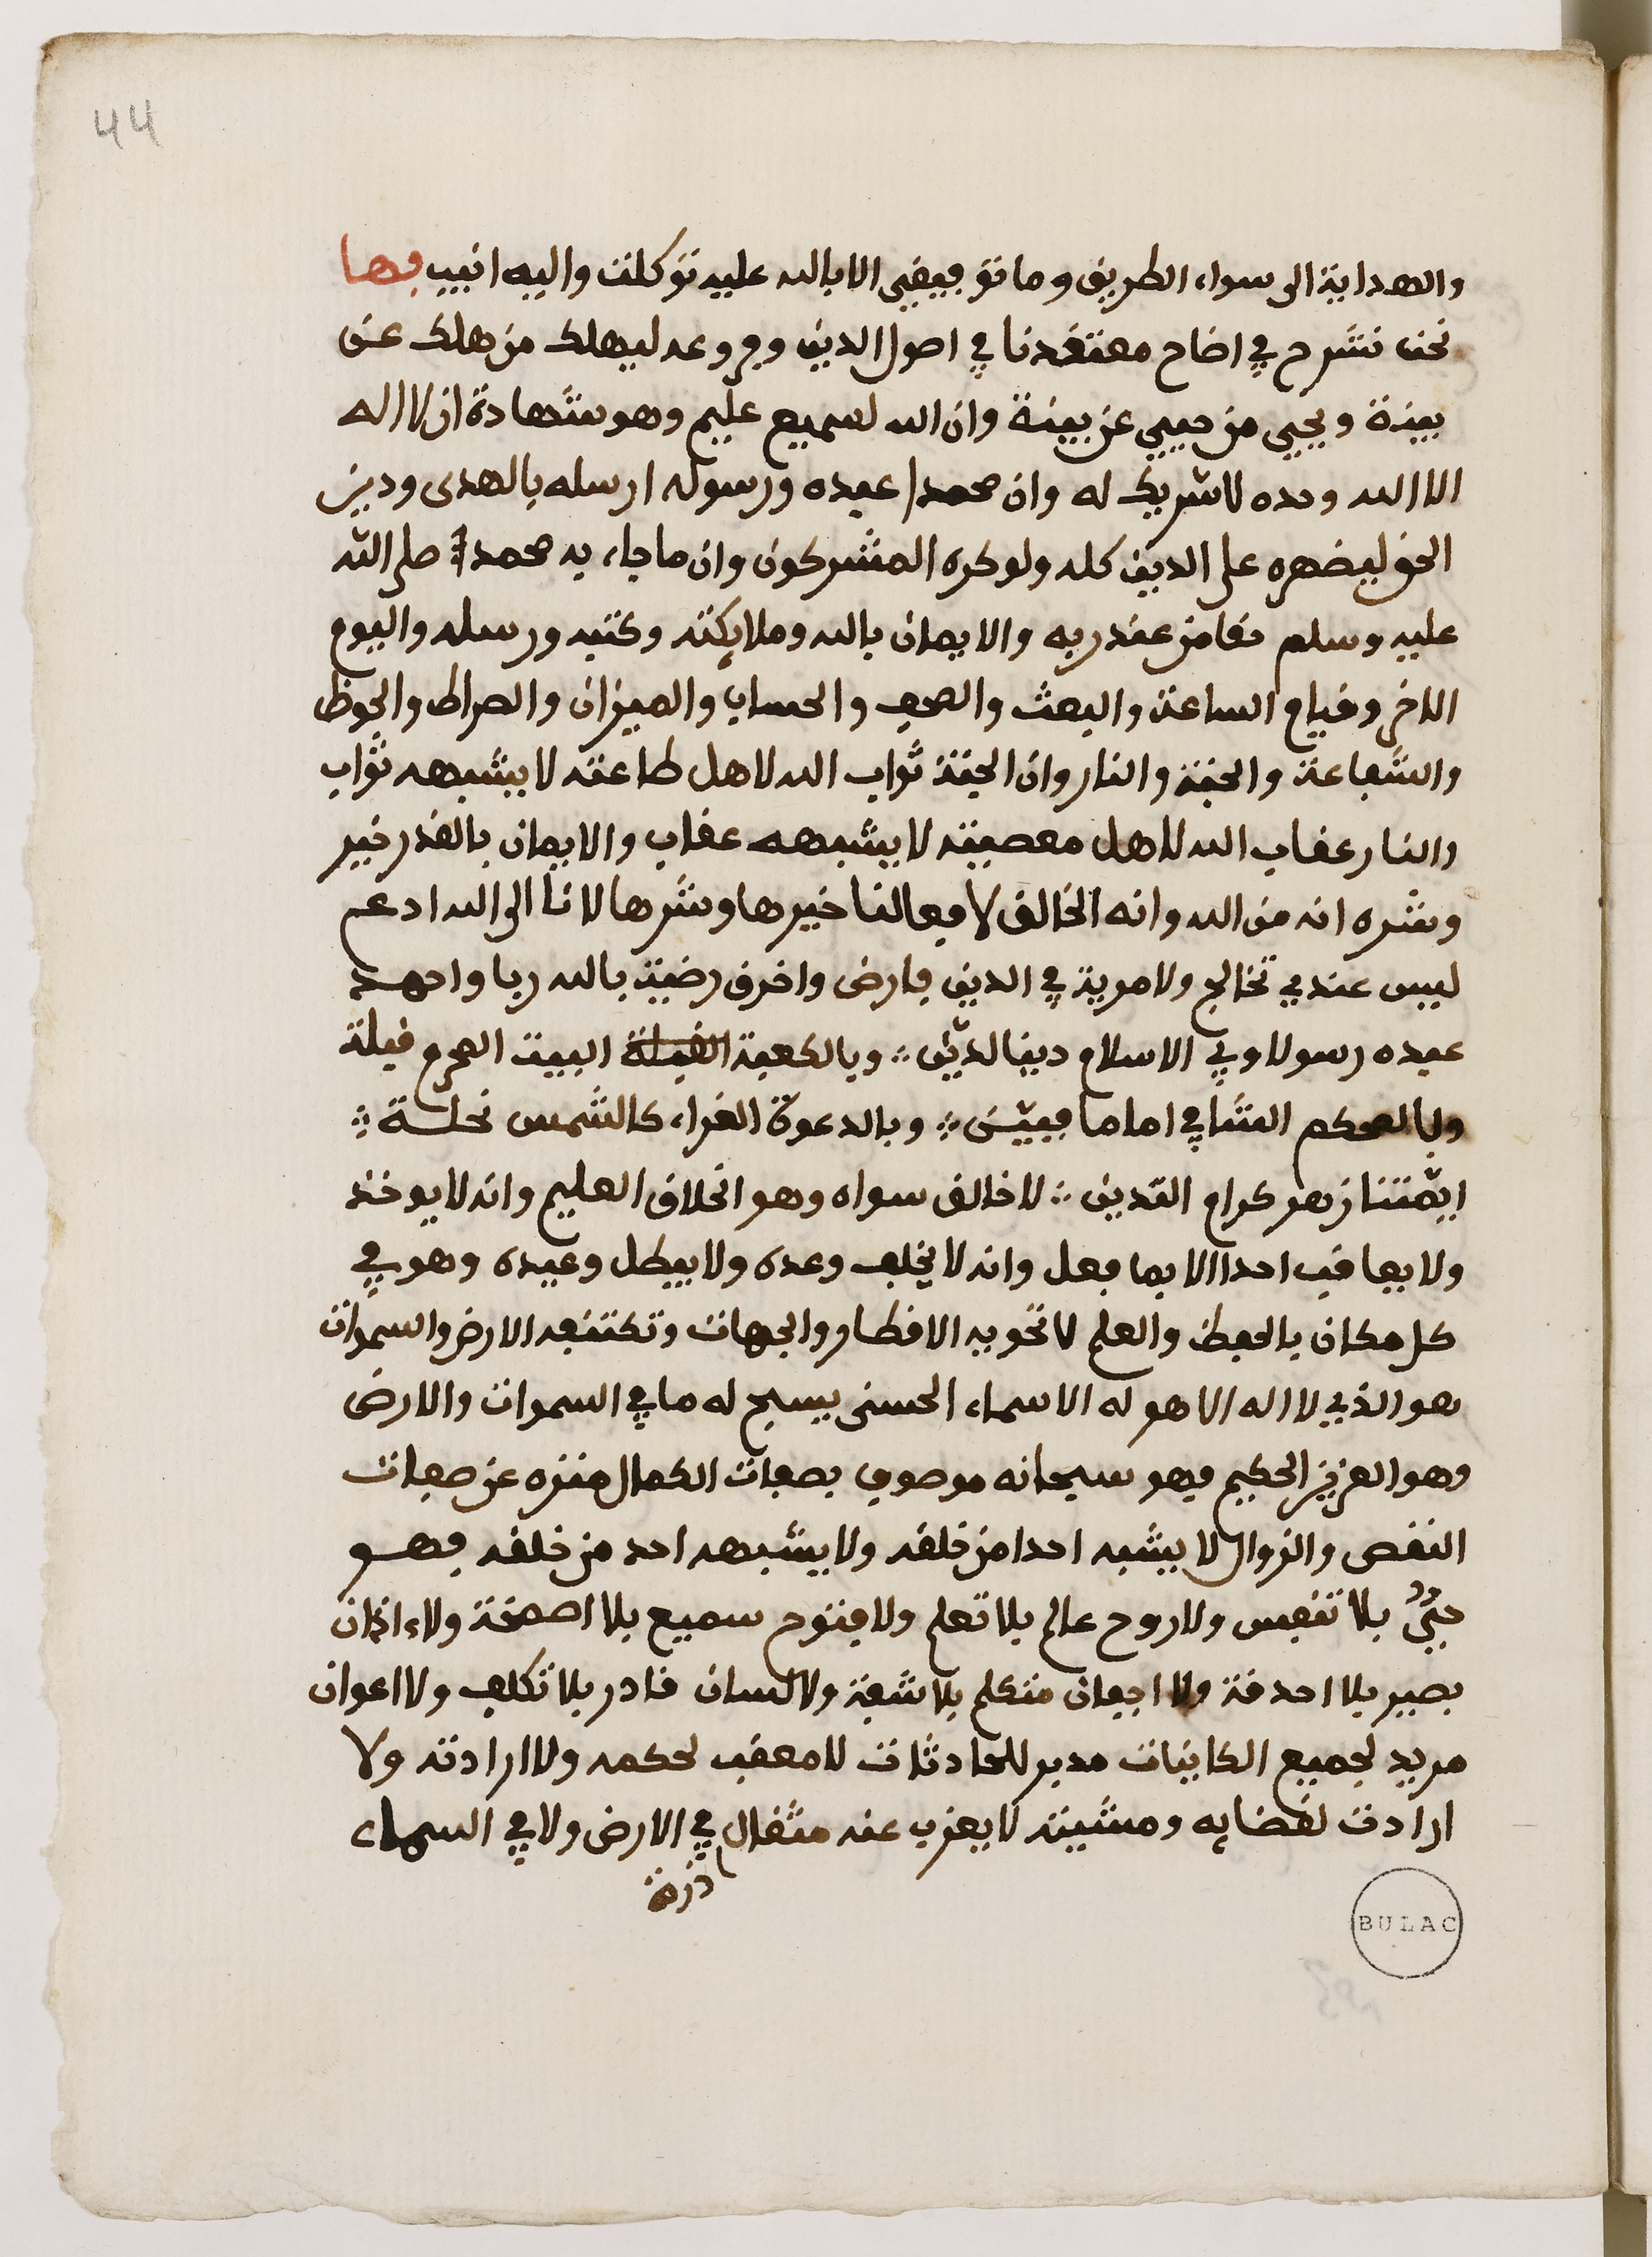 44
والهداية الى سواء الطريق وما توفيقي الا بالله عليه توكلت واليه انيب فها
نحن نشرح في اضاح معتقدنا في اصول الدين وفروعه ليهلك من هلك عن
بينة ويحيي من حيي عن بينة وان الله لسميع عليم وهو شهادة ان لا اله
الا الله وحده لا شريك له وان محمدا عبده ورسوله ارسله بالهدى ودين
الحق ليضهره على الدين كله ولو كره المشركون وان ما جاء به محمد صلى الله
عليه وسلم حقا من عند ربه والايمان بالله وملايكته وكتبه ورسله واليوم
الاخر وقيام الساعة والبعث والصحف والحساب والميزان والصراط والحوظ
والشفاعة والجنة والنار وان الجنة ثواب الله لاهل طاعته لا يشبهه ثواب
والنار عقاب الله لاهل معصيته لا يشبهه عقاب والايمان بالقدر خير
وشره انه من الله وانه الخالق لافعالنا خيرها وشرها لانا الى الله ادعم
ليس عندي تخالج ولا مرية في الدين فارض واخرق رضيت بالله ربا واحمد
عبده رسولا وفي الاسلام دينا لديّن ؞ وبالكعبة القبلة البيت المحرم قبلة
وبالمحكم الشافي اماما فبيّن ؞ وبالدعوة الغراء كالشمس نحلة ؞
ايمّتنا زهر كرام التدين ؞ لا خالق سواه وهو الخلاق العليم وانه لا يوخذ
ولا يعاقب احدا الا بما فعل وانه لا يخلف وعده ولا يبطل وعيده وهو في
كل مكان بالحفظ والعلم لا تحويه الاقطار والجهات وتكتنفه الارض والسموات
هو الذي لا اله الا هو له الاسماء الحسنى يسبح له ما في السموات والارض
وهو العزيز الحكيم فهو سبحانه موصوف بصفات الكمال منزه عن صفات
النقص والزوال لا يشبه احدا من خلقه ولا يشبهه احد من خلقه فهو
حيٌّ بلا تنفس ولا روح عالم بلا تعلم ولا فتوح سميع بلا اصمخة ولا ءاذان
بصير بلا احدقة ولا اجفان متكلم بلا شفة ولا لسان قادر بلا تكلف ولا اعوان
مريد لجميع الكاينات مدبر للحادثات لا معقب لحكمه ولا ارادته ولا
ارادت لقضايه ومشيته لا يعزب عنه مثقال في الارض ولا في السماء
ذرة
BULAC